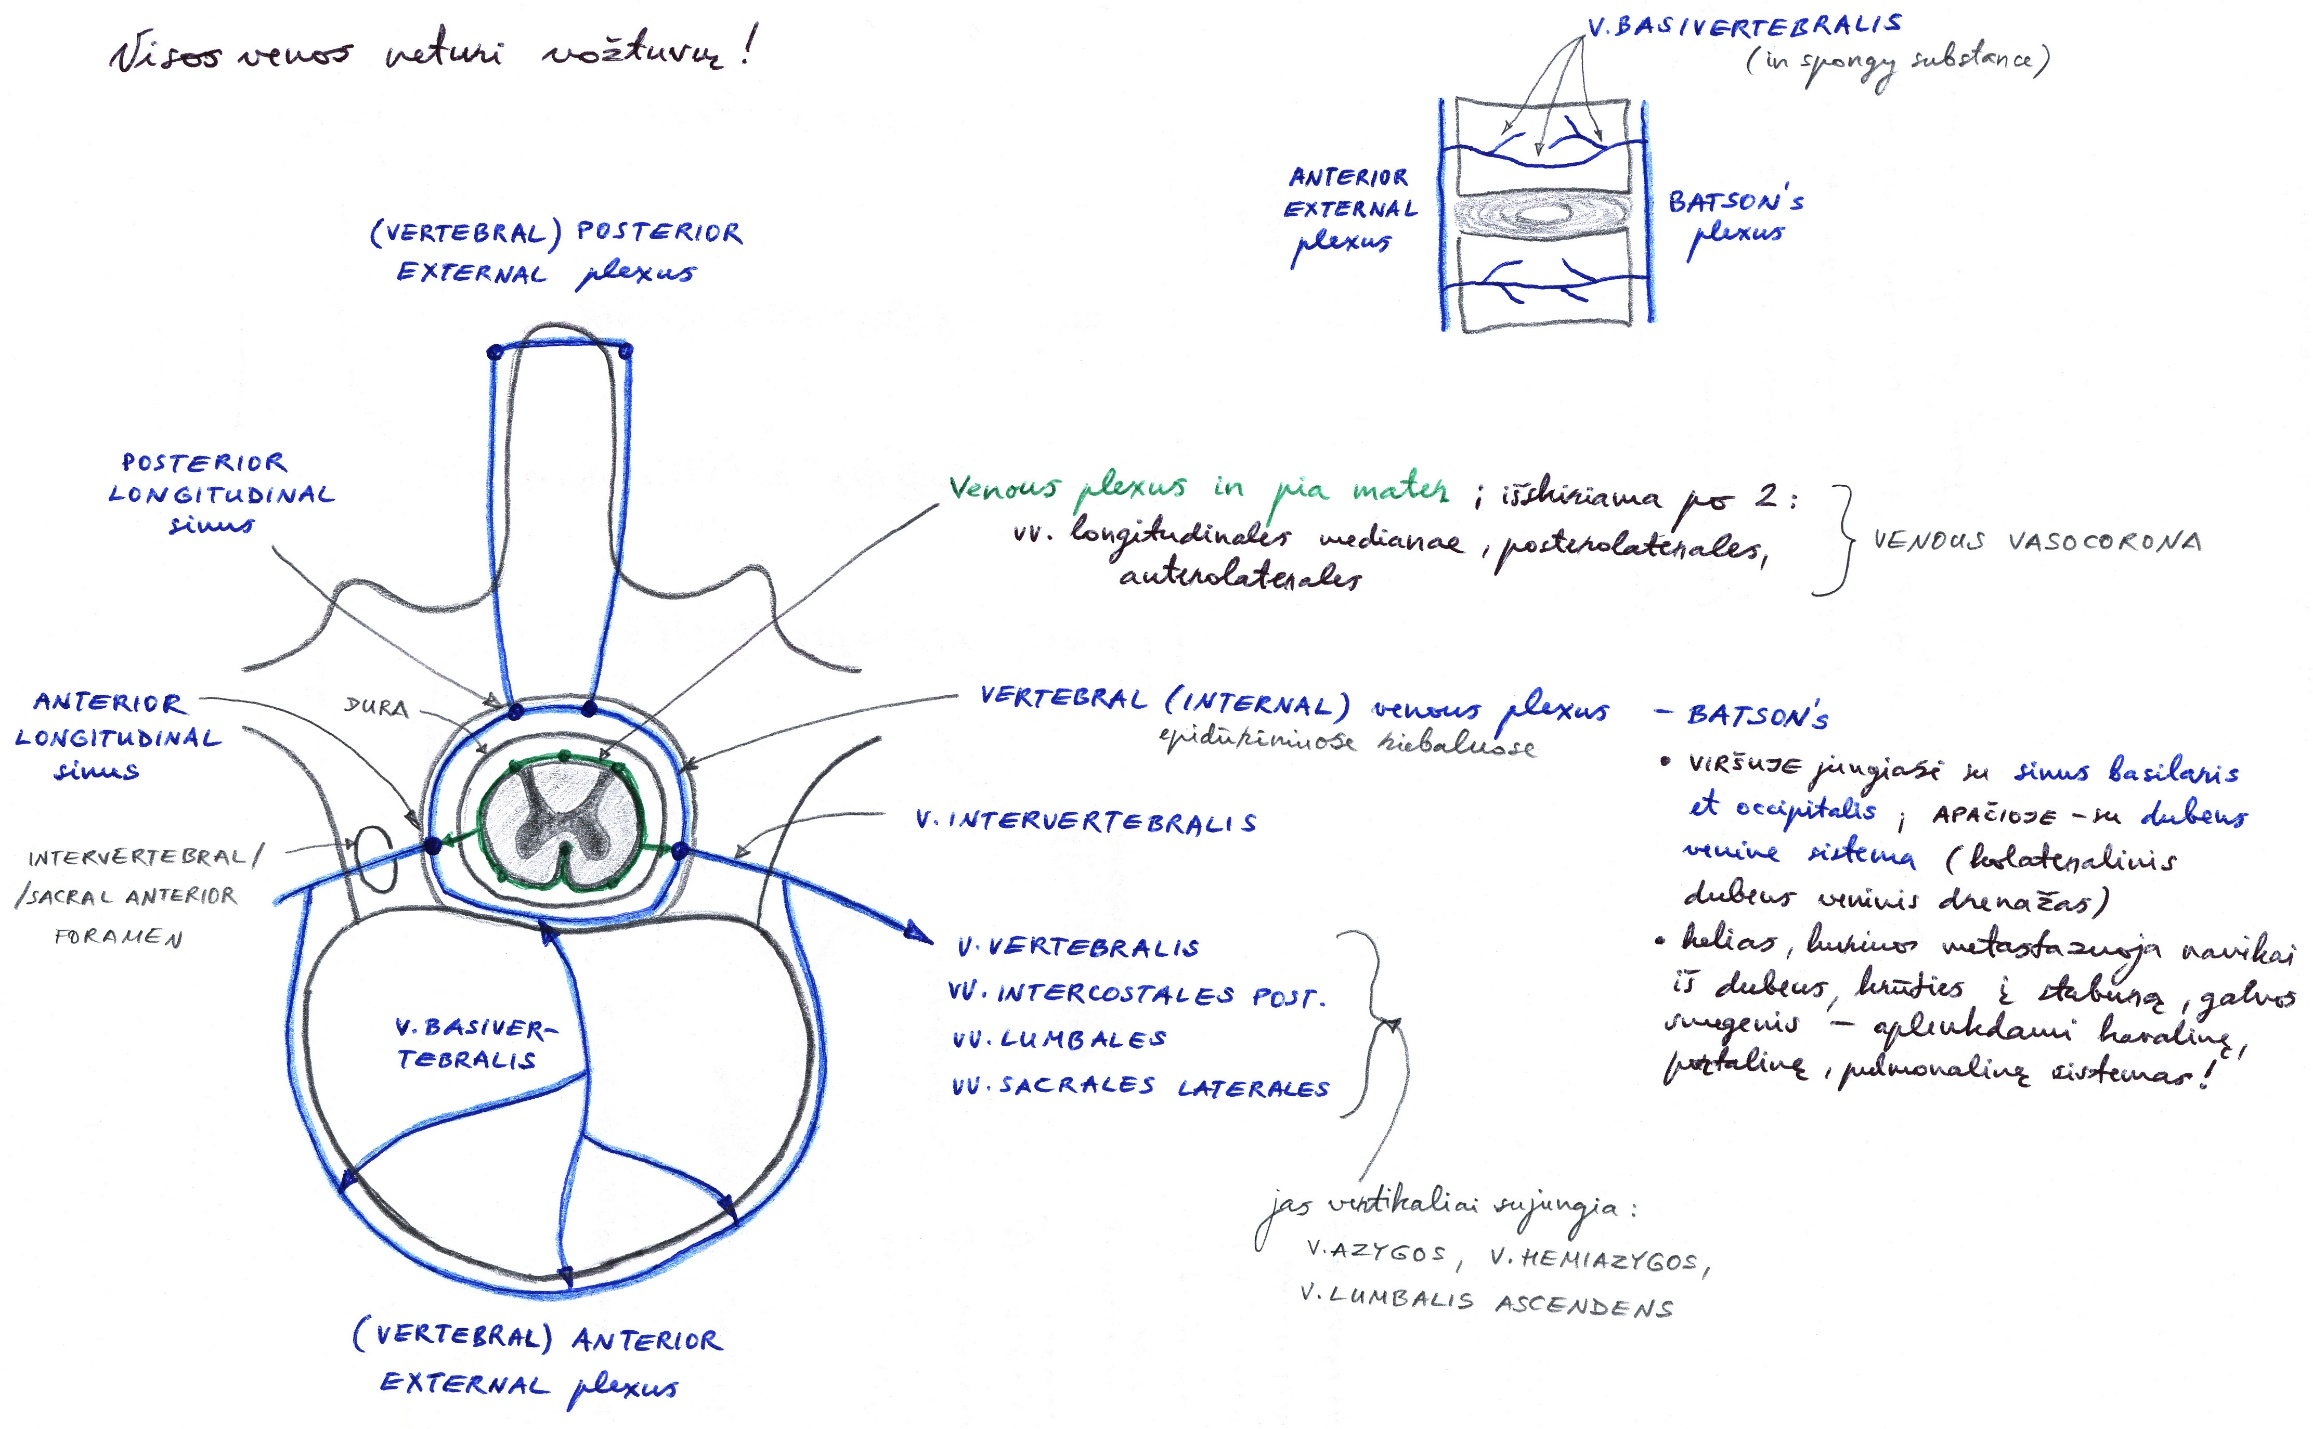 Visos venos neturi vožtuvų!
V. BASIVERTEBRALIS
(in spongy substance)
ANTERIOR
EXTERNAL
plexus
BATSON's
plexus
(VERTEBRAL) POSTERIOR
EXTERNAL plexus
POSTERIOR
LONGITUDINAL
sinus
Venous plexus in pia mater; išskiriama po 2:
vv. longitudinales medianae, posterolaterales,
anterolaterales
VENOUS VASOCORONA
ANTERIOR
LONGITUDINAL
sinus
DURA
VERTEBRAL (INTERNAL) venous plexus - BATSON's
epidūriniuose riebaluose
• VIRŠUJE jungiasi su sinus basilaris
et occipitalis; APAČIOJE - su dubens
venine sistema (kolateralinis
dubens veninis drenažas)
• kelias, kuriuo metastazuoja navikai
iš dubens, krūties į stuburą, galvos
smegenis - aplenkdami kavalinę,
portalinę, pulmonalinę sistemas!
V. INTERVERTEBRALIS
INTERVERTEBRAL/
/SACRAL ANTERIOR
FORAMEN
V. VERTEBRALIS
VV. INTERCOSTALES POST.
VV. LUMBALES
VV. SACRALES LATERALES
V. BASIVER-
TEBRALIS
jas vertikaliai sujungia:
V. AZYGOS, V. HEMIAZYGOS,
V. LUMBALIS ASCENDENS
(VERTEBRAL) ANTERIOR
EXTERNAL plexus